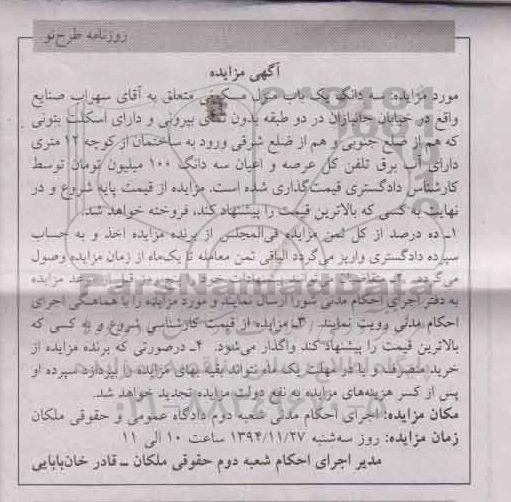 روزنامه طرح نو
آگهی مزایده
مورد مزایده: سه دانگ یک باب منزل مسکونی متعلق به آقای سهراب صنایع
واقع در خیابان جانبازان در دو طبقه بدون نمای بیرونی و دارای اسکلت بتونی
که هم از ضلع جنوبی و هم از ضلع شرقی ورود به ساختمان از کوچه ۱۲ متری
دارای آب برق تلفن کل عرصه و اعیان سه دانگ ۱۰۰ میلیون تومان توسط
کارشناس دادگستری قیمت‌گذاری شده است. مزایده از قیمت پایه شروع و در
نهایت به کسی که بالاترین قیمت را پیشنهاد کند، فروخته خواهد شد.
۱ـ ده درصد از کل ثمن مزایده فی‌المجلس از برنده مزایده اخذ و به حساب
سپرده دادگستری واریز می‌گردد الباقی ثمن معامله تا یک‌ماه از زمان مزایده وصول
می‌گردد. ۲ـ متقاضیان می‌توانند پیشنهادات خود را پنج روز قبل از موعد مزایده
به دفتر اجرای احکام مدنی شورا ارسال نمایند و مورد مزایده را با هماهنگی اجرای
احکام مدنی رویت نمایند. ۳ـ مزایده از قیمت کارشناسی شروع و به کسی که
بالاترین قیمت را پیشنهاد کند واگذار می‌شود. ۴ـ درصورتی که برنده مزایده از
خرید منصرف و یا در مهلت یک ماه نتواند بقیه بهای مزایده را بپردازد سپرده او
پس از کسر هزینه‌های مزایده به نفع دولت مزایده تجدید خواهد شد.
مکان مزایده: اجرای احکام مدنی شعبه دوم دادگاه عمومی و حقوقی ملکان
زمان مزایده: روز سه‌شنبه ۱۳۹۴/۱۱/۲۷ ساعت ۱۰ الی ۱۱
مدیر اجرای احکام شعبه دوم حقوقی ملکان ــ قادر خان‌بابایی
ParsNamadData